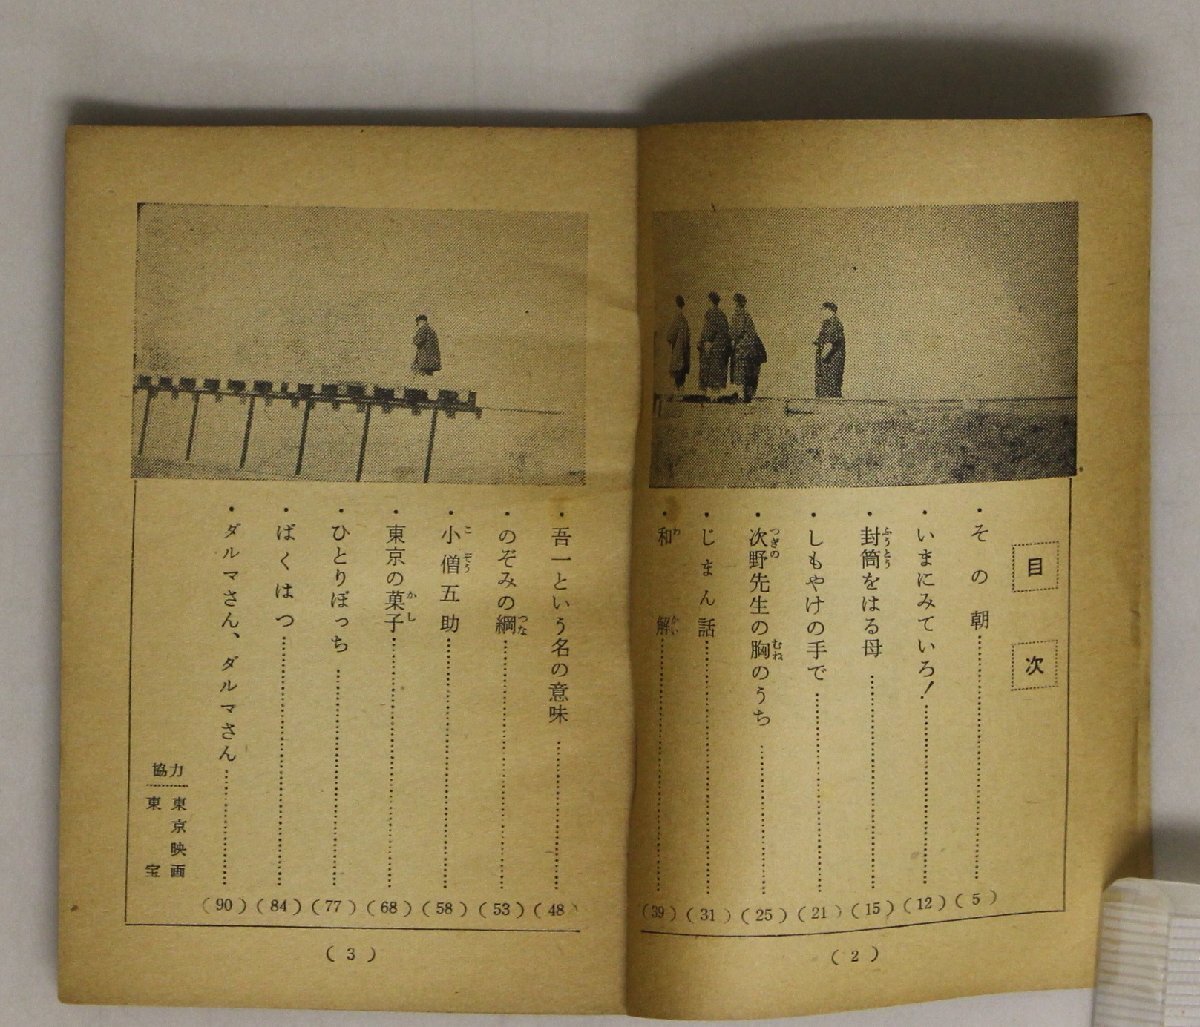 目次
・その朝…………(5)
・いまにみていろ！…………(12)
・封筒をはる母…………(15)
ふうとう
・しもやけの手で…………(21)
・次野先生の胸のうち…………(25)
つぎの
むね
・じまん話…………(31)
・和解…………(39)
わ
かい
(2)
・吾一という名の意味…………(48)
・のぞみの綱…………(53)
つな
・小僧五助…………(58)
こぞう
・東京の菓子…………(68)
かし
・ひとりぼっち…………(77)
・ばくはつ…………(84)
・ダルマさん、ダルマさん…………(90)
協力
東京映画
東宝
(3)